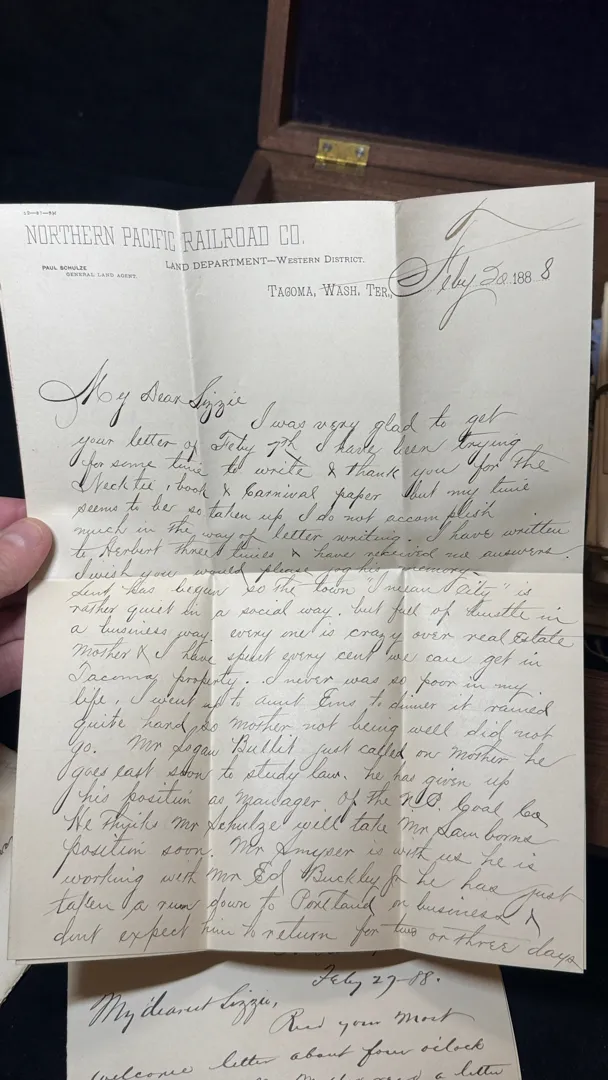 NORTHERN PACIFIC RAILROAD CO.
PAUL SCHULZE
GENERAL LAND AGENT.
LAND DEPARTMENT—WESTERN DISTRICT.
TACOMA, WASH. TER., Feby 20 1888
My Dear Lizzie
I was very glad to get
your letter of Feby 7th I have been trying
for some time to write & thank you for the
Necktie, book & Carnival paper but my time
seems to be so taken up I do not accomplish
much in the way of letter writing. I have written
to Herbert three times & have received no answers.
I wish you would please jog his memory.
Lent has began so the town "I mean City" is
rather quiet in a social way. but full of hustle in
a business way. every one is crazy over real Estate
Mother & I have spent every cent we can get in
Tacoma property. I never was so poor in my
life, I went up to aunt Ems to dinner it rained
quite hard so Mother not being well did not
go. Mr Logan Bullit just called on Mother he
goes east soon to study law. he has given up
his position as Manager of the N.P. Coal Co
He thinks Mr Schulze will take Mr Samborns
position soon. Mr Smyser is with us he is
working with Mr Ed Buckley he has just
taken a run down to Portland on business &
dont expect him to return for two or three days
Feby 27-88.
My dearest Lizzie,
Recd your most
welcome letter about four o'clock
a letter